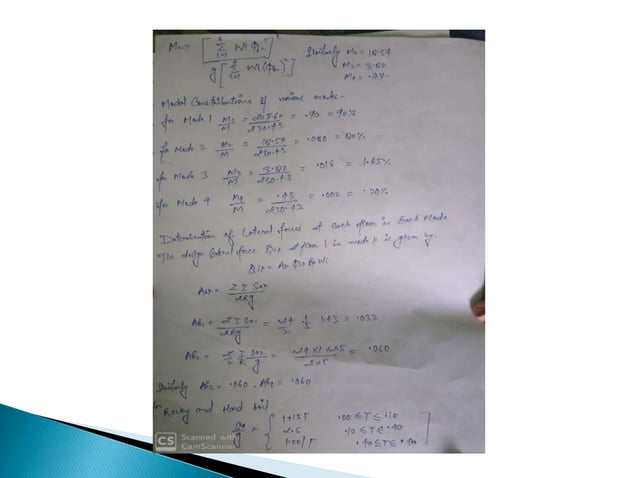 M₂ = [Σ Wi Φ]² / g[Σ Wi (Φ)²] Similarly M₂ = 18.54
M₃ =
M₄ = .47
Modal Contributions of various modes
for Mode 1 M₁/M = /230.43 = .90 = 90%
for Mode 2 M₂/M = 18.54/230.43 = .080 =
for Mode 3 /M = /230.43 = .016 = 1.65%
for Mode 4 M₄/M = .43/230.43 = .002 = .20%
Determination of Lateral forces at each floor in Each Mode.
The design lateral force Qik at floor i in mode k is given by
Qik = Ak Φik Pk Wi
Ahk = Z I Sak / 2Rg
Ah₁ = Z I Sa₁ / 2Rg = .24/2 1.43 = .033
Ah₂ = Z/2 I/R Sa₂/g = .24 × 1 × 2.5 / 2×5 = .060
Similarly Ah₃ = .060 . Ah₄ = .060
for Rocky and Hard Soil
Sa/g = { 1+15T .00 ≤ T ≤ .10
2.5 .10 ≤ T ≤ .40
1.00/T
CS Scanned with
CamScanner